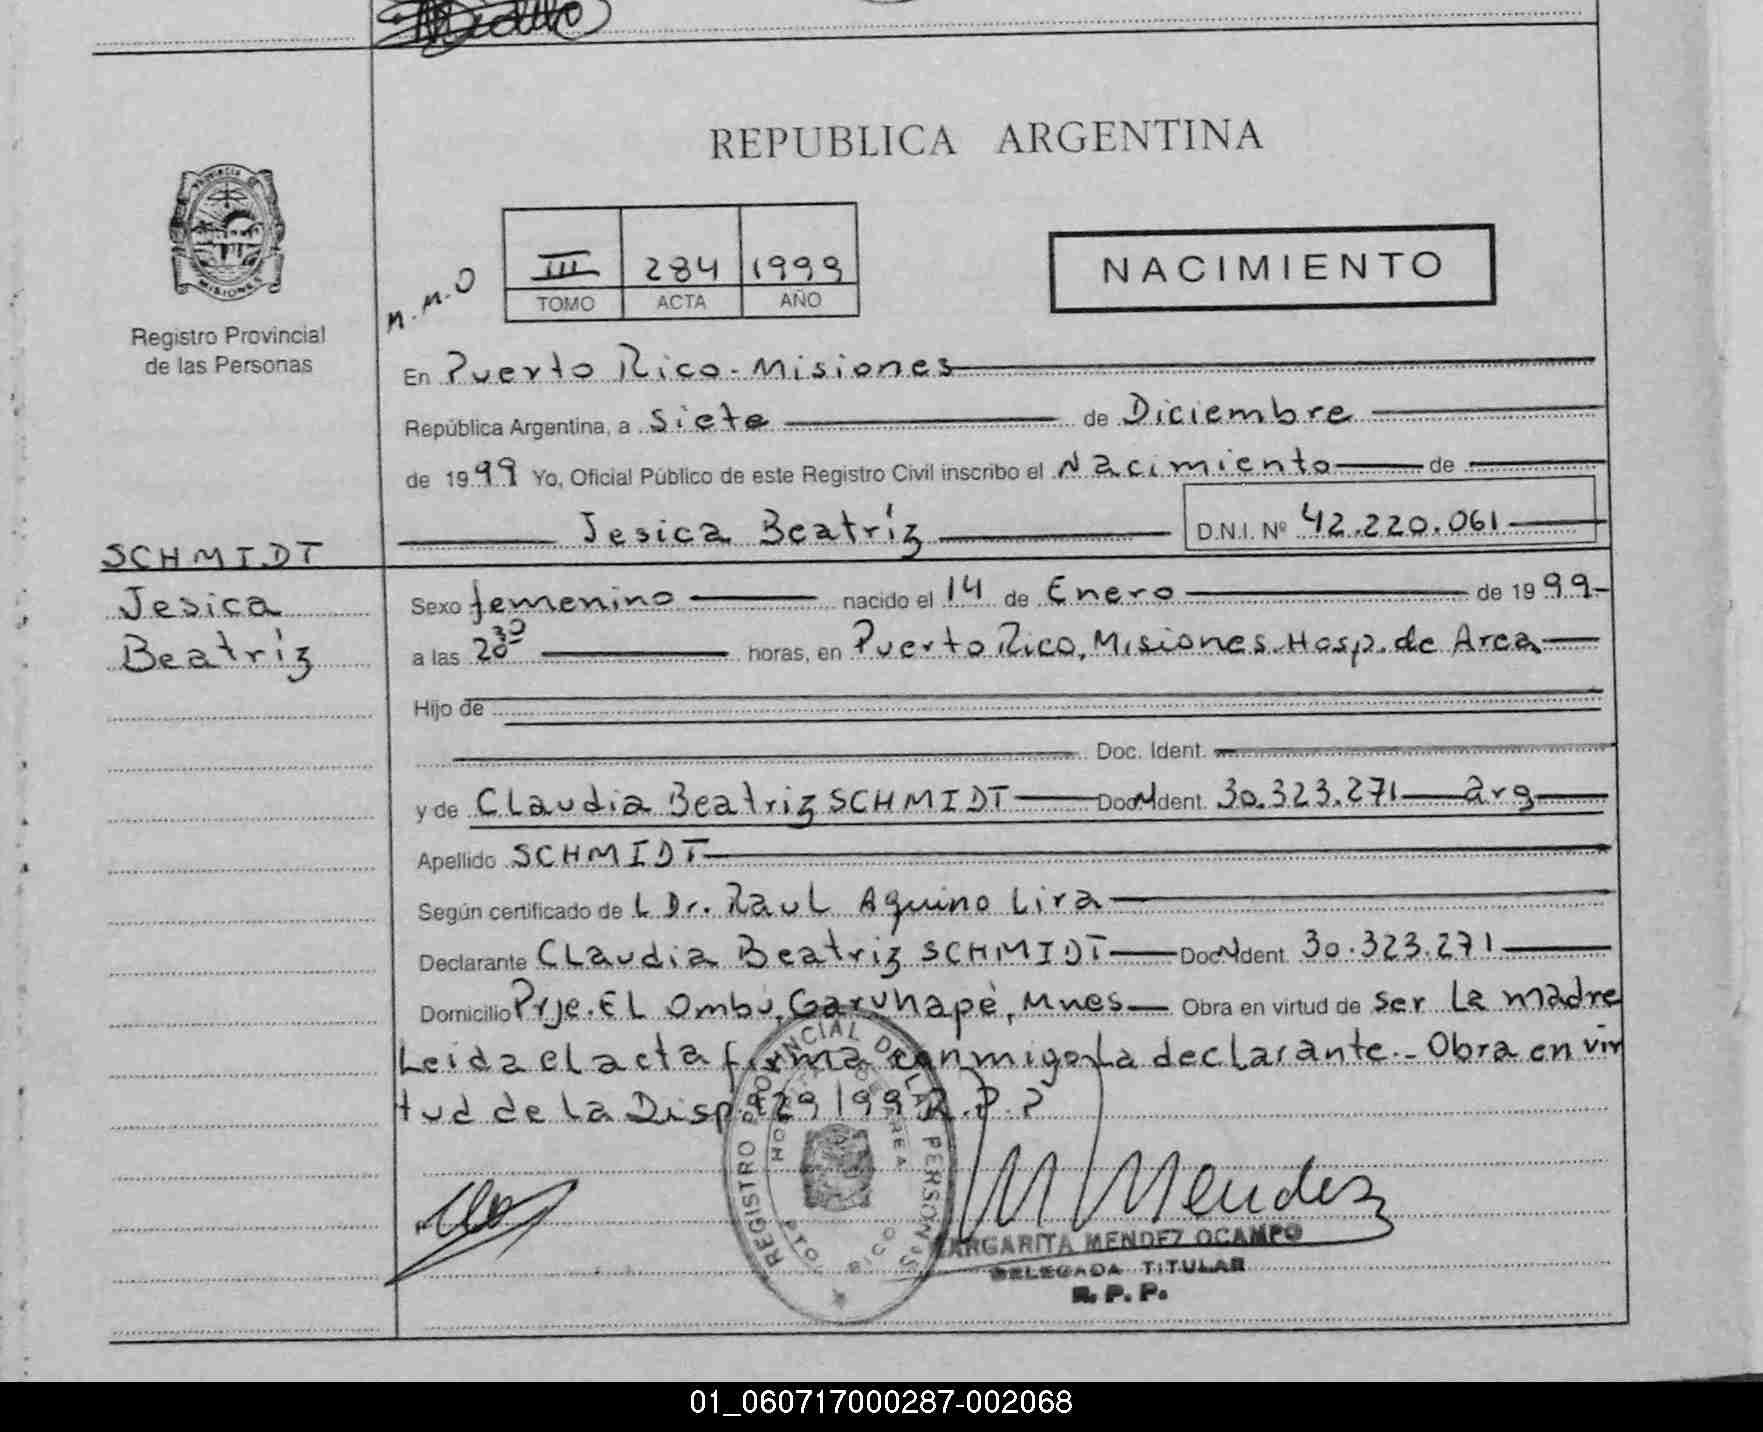 REPUBLICA ARGENTINA
PROVINCIA DE
MISIONES
Registro Provincial
de las Personas
III 284 1999
TOMO ACTA AÑO
NACIMIENTO
En Puerto Rico - Misiones
República Argentina, a Siete de Diciembre
de 1999 Yo, Oficial Público de este Registro Civil inscribo el Nacimiento de
Jesica Beatríz D.N.I. Nº 42.220.061
SCHMIDT
Jesica
Beatríz
Sexo femenino nacido el 14 de Enero de 1999-
a las 20 30 horas, en Puerto Rico, Misiones. Hosp. de Area
Hijo de
Doc. Ident.
y de Claudia Beatriz SCHMIDT Doc. Ident. 30.323.271 arg
Apellido SCHMIDT
Según certificado de L Dr. Raul Aquino Lira
Declarante Claudia Beatriz SCHMIDT Doc. Ident. 30.323.271
Domicilio Prje. El Ombú, Garuhapé, Mnes Obra en virtud de ser la madre
Leida el acta firma conmigo la declarante.- Obra en vir
tud de la Disp. 129/99 R.P.P
REGISTRO PROVINCIAL DE LAS PERSONAS
HOSPITAL DE AREA
PTO RICO
M Mendez
MARGARITA MENDEZ OCAMPO
DELEGADA TITULAR
R. P. P.
01_060717000287-002068